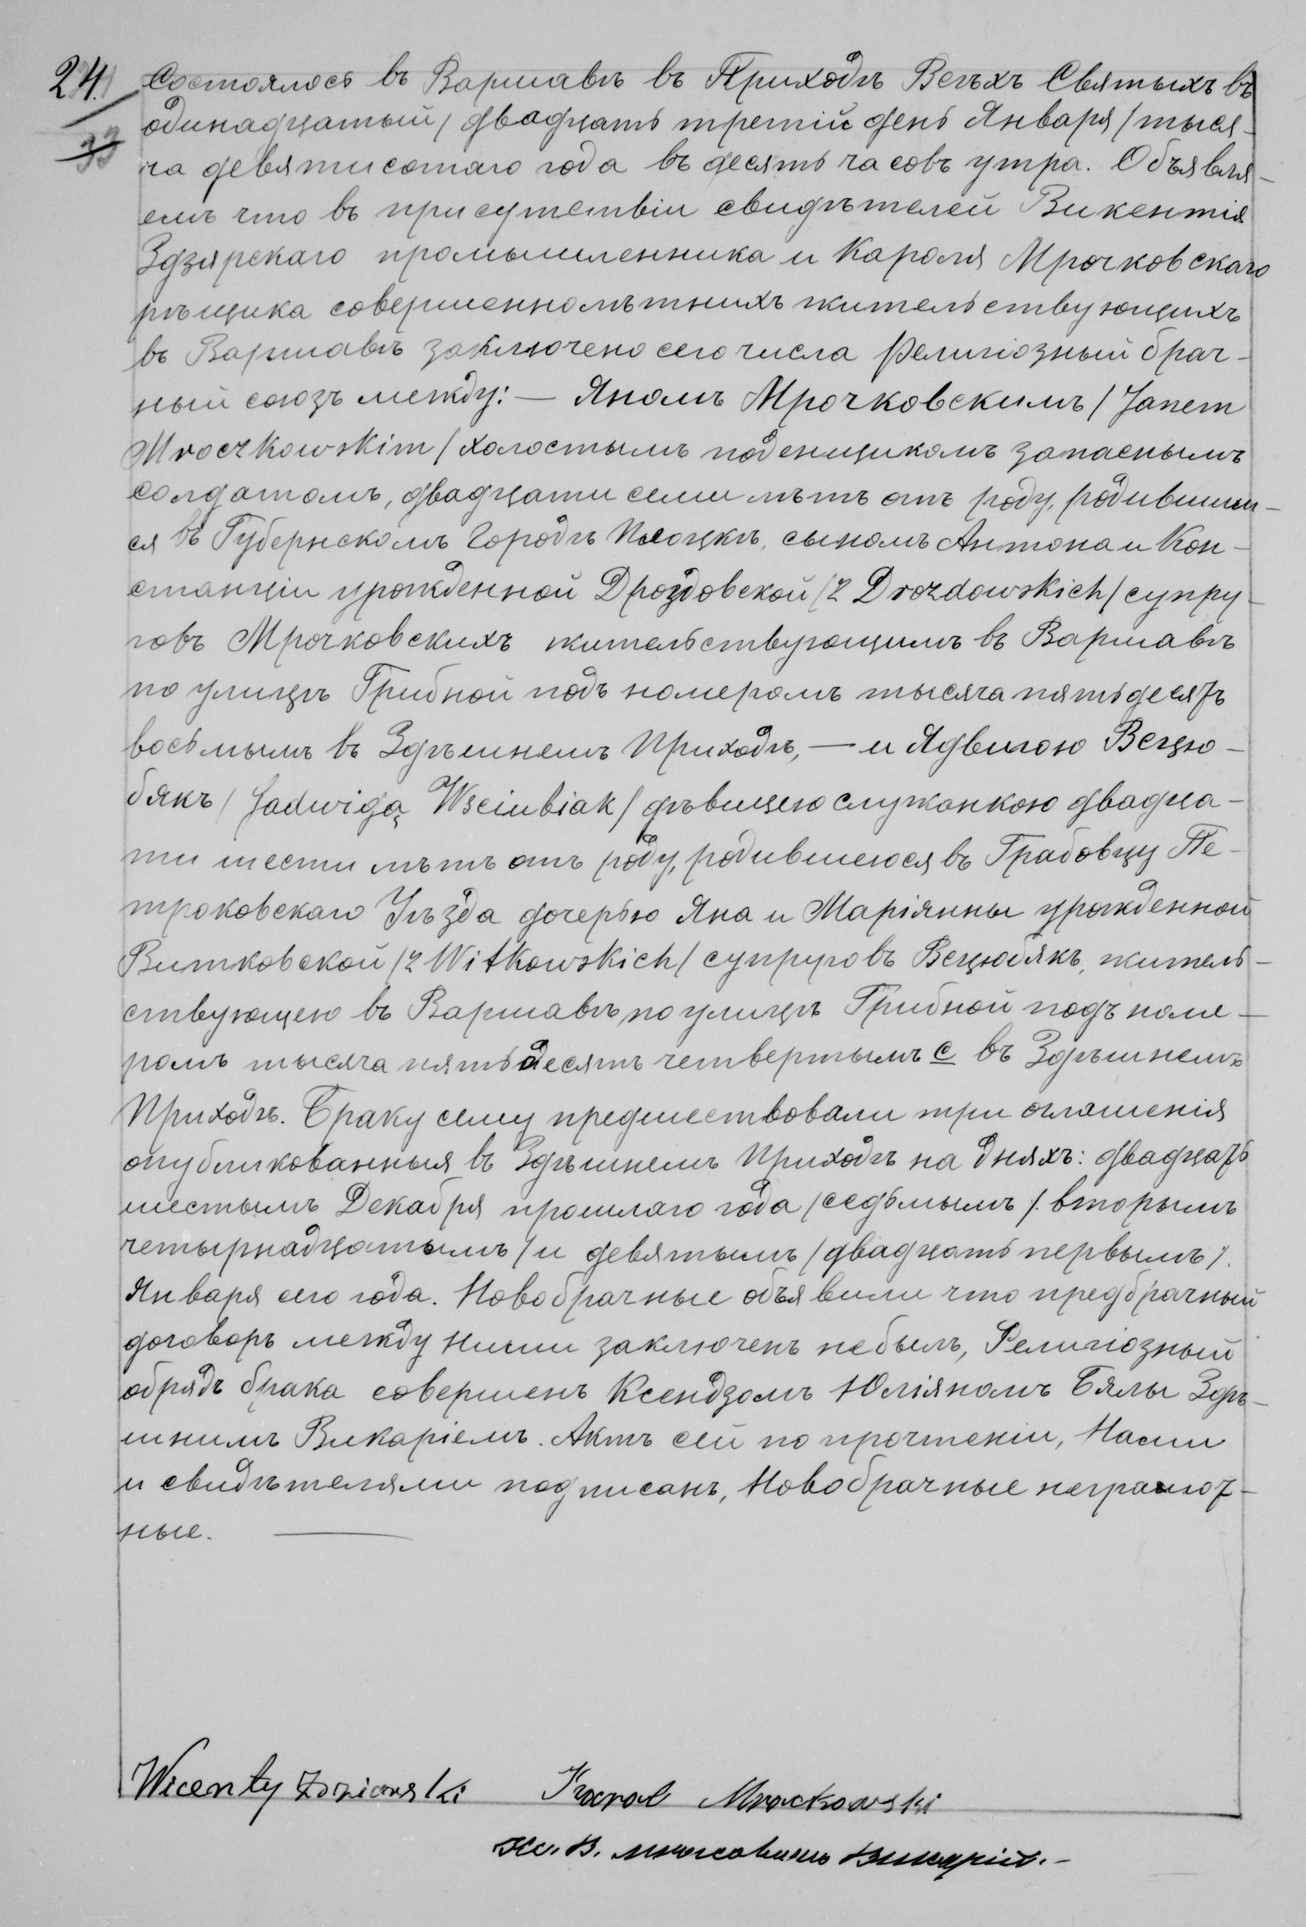 24.
33
Состоялось въ Варшавѣ въ Приходѣ Всѣхъ Святыхъ въ
одинадцатый / двадцать третій день Января / тыся-
ча девятисотаго года въ десять часовъ утра. Объявля-
емъ что въ присутствіи свидѣтелей Викентія
Здзярскаго промышленника и Кароля Мрочковскаго
рѣщика совершеннолѣтнихъ жительствующихъ
въ Варшавѣ заключено сего числа религіозный брач-
ный союзъ между: — Яномъ Мрочковскимъ / Janem
Mroczkowskim / холостымъ поденщикомъ запаснымъ
солдатомъ, двадцати семи лѣтъ отъ роду, родившим-
ся въ Губернскомъ Городѣ Плоцкѣ, сыномъ Антона и Кон-
станціи урожденной Дроздовской / z Drozdowskich / супру-
говъ Мрочковскихъ жительствующимъ въ Варшавѣ
по улицѣ Грибной подъ номеромъ тысяча пятьдесятъ
восьмымъ въ Здѣшнемъ Приходѣ, — и Ядвигою Всцю-
бякъ / Jadwigą Wściubiak / дѣвицею служанкою двадца-
ти шести лѣтъ отъ роду, родившеюся въ Грабовцу Пе-
троковскаго Уѣзда дочерью Яна и Маріянны урожденной
Витковской / z Witkowskich / супруговъ Всцюбякъ, житель-
ствующею въ Варшавѣ по улицѣ Грибной подъ номе-
ромъ тысяча пятьдесятъ четвертымъ с въ Здѣшнемъ
Приходѣ. Браку сему предшествовали три оглашенія
опубликованныя въ Здѣшнемъ Приходѣ на дняхъ: двадцать
шестымъ Декабря прошлаго года / седьмымъ /. вторымъ
четырнадцатымъ / и девятымъ / двадцать первымъ /.
Января сего года. Новобрачные объявили что предбрачный
договоръ между ними заключенъ небылъ, Религіозный
обрядъ брака совершенъ Ксендзомъ Юліяномъ Бялы Здѣ-
шнимъ Викаріемъ. Актъ сей по прочтеніи, Нами
и свидѣтелями подписанъ, Новобрачные неграмот-
ные.
Wicenty Zdziarski Karol Mroczkowski
Кс. В. Викарій.